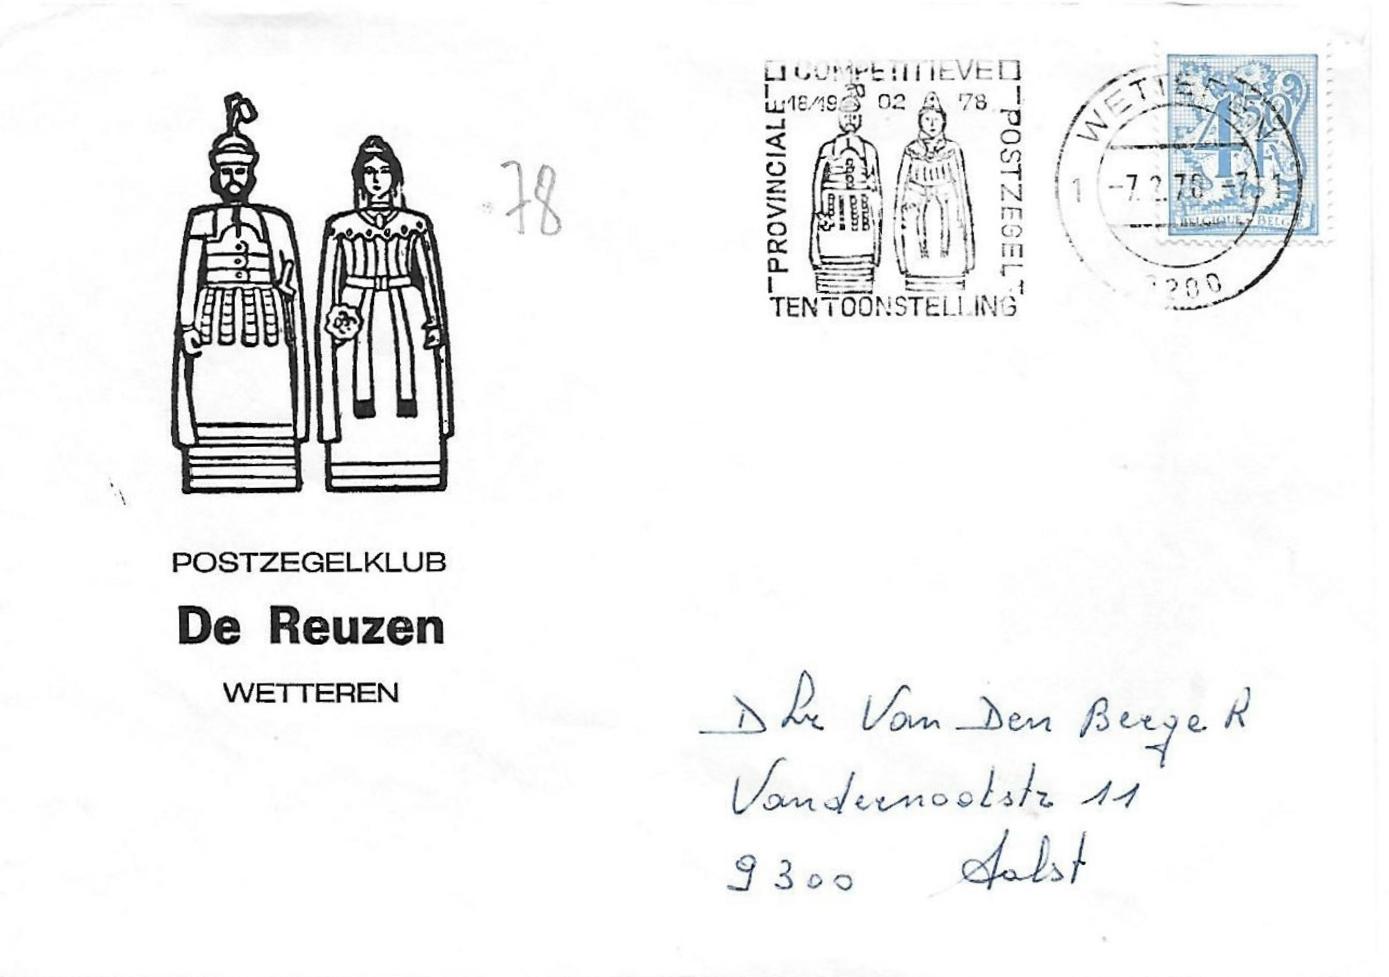 COMPETITIEVE
PROVINCIALE
18/19 02 78
POSTZEGEL
TENTOONSTELLING
WETTEREN
1 -7.2.78 -7 1
BELGIQUE - BELGIE
78
POSTZEGELKLUB
De Reuzen
WETTEREN
Dhr Van Den Berge R
Vandernootstr 11
9300 Aalst